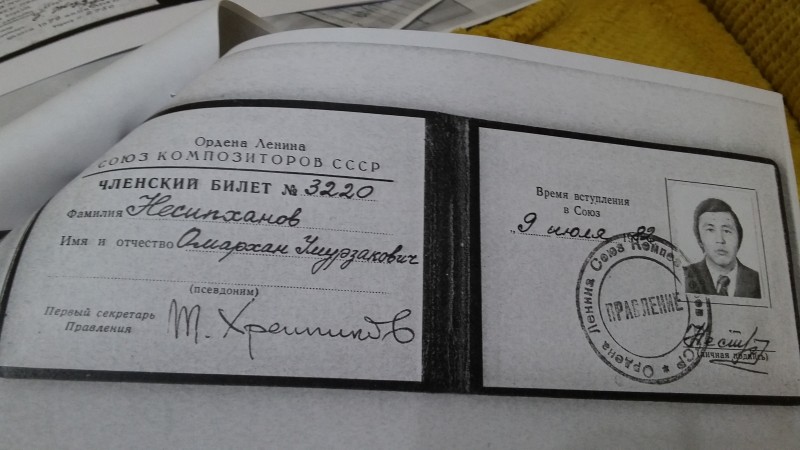 Ордена Ленина
СОЮЗ КОМПОЗИТОРОВ СССР
ЧЛЕНСКИЙ БИЛЕТ № 3220
Фамилия Несипханов
Имя и отчество Омархан Умурзакович
(псевдоним)
Первый секретарь
Правления
Т. Хренников
Время вступления
в Союз
„9 июля
ПРАВЛЕНИЕ
Ордена Ленина Союз Композ
(личная подпись)